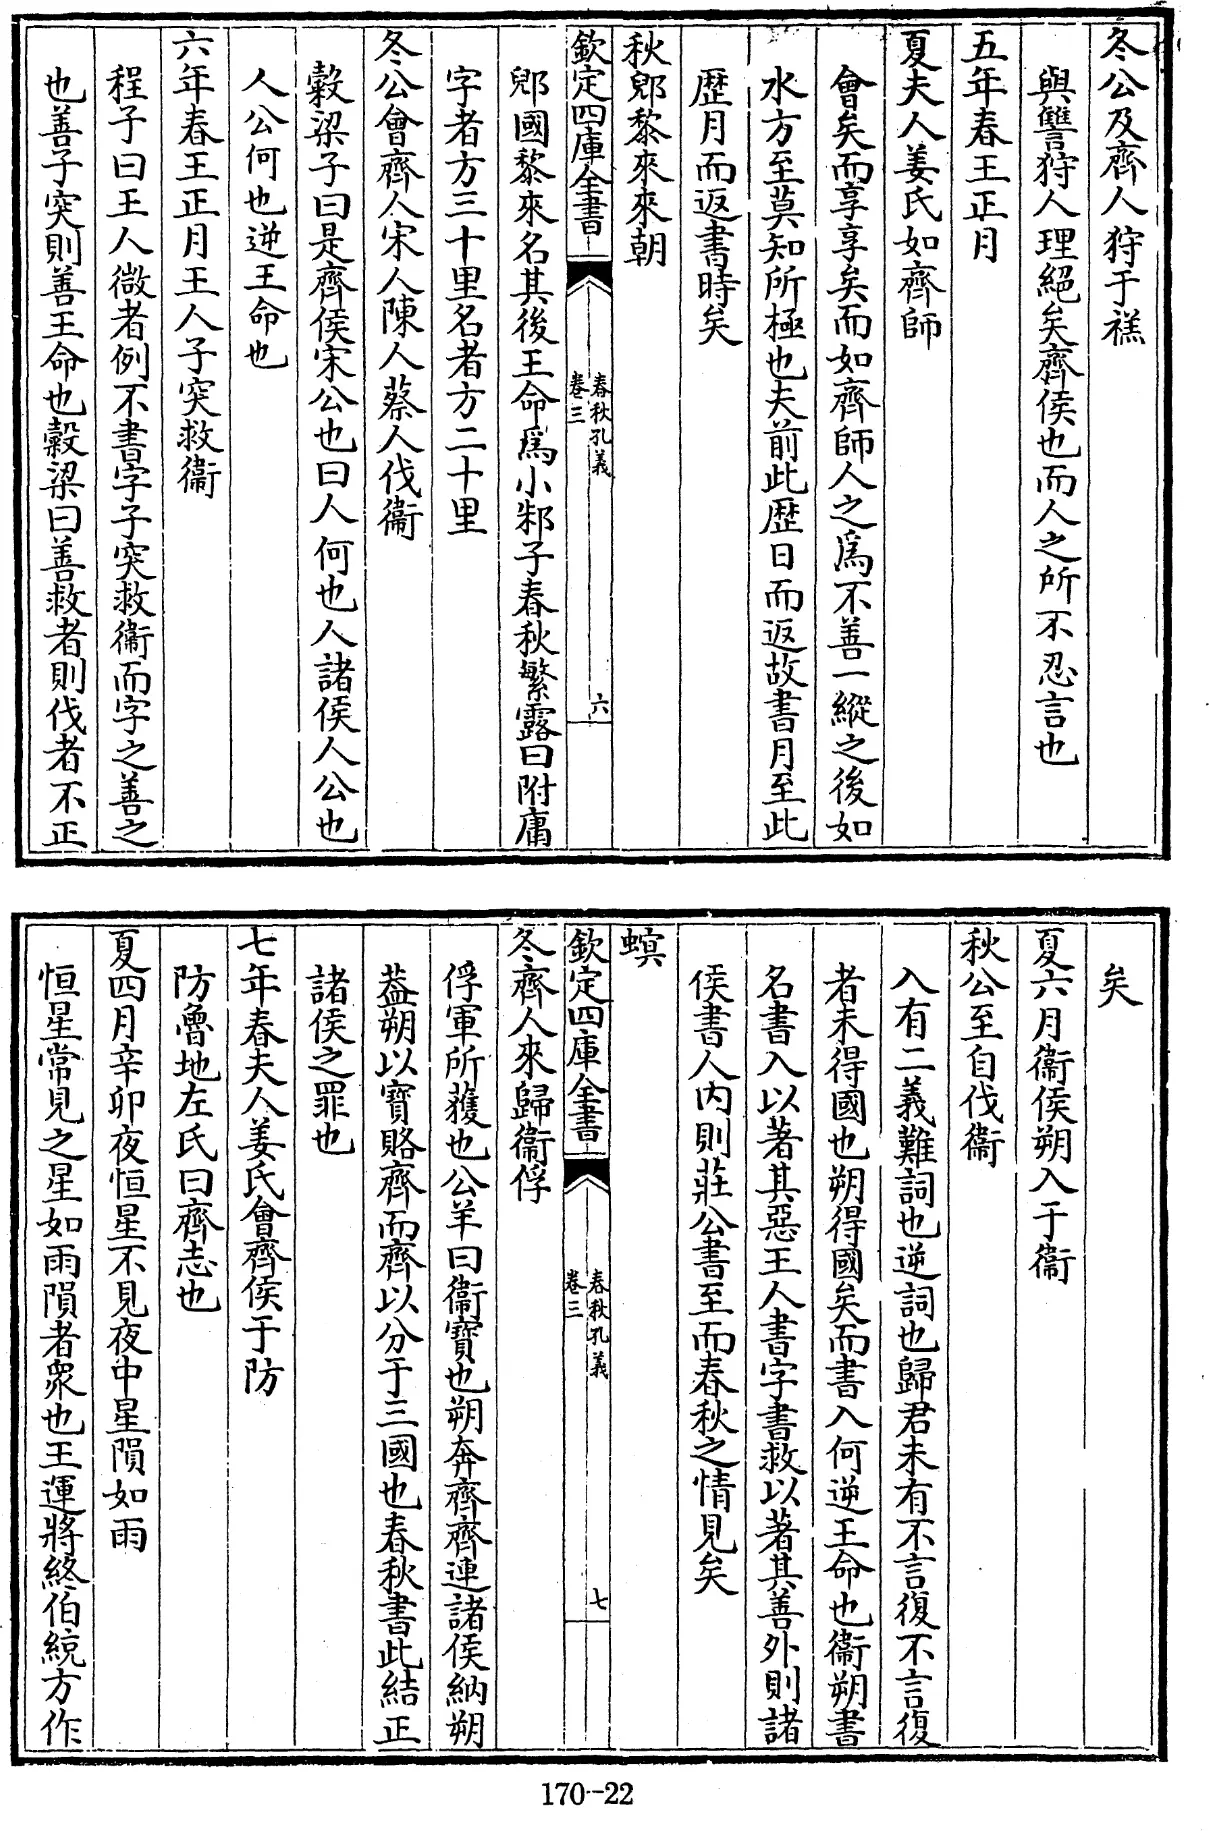 冬公及齊人狩于禚
與讐狩人理絕矣齊侯也而人之所不忍言也
五年春王正月
夏夫人姜氏如齊師
會矣而享享矣而如齊師人之爲不善一縱之後如
水方至莫知所極也夫前此歷日而返故書月至此
歷月而返書時矣
秋郳黎來來朝
欽定四庫全書
春秋孔義
卷三
六
郳國黎來名其後王命爲小邾子春秋繁露曰附庸
字者方三十里名者方二十里
冬公會齊人宋人陳人蔡人伐衞
穀梁子曰是齊侯宋公也曰人何也人諸侯人公也
人公何也逆王命也
六年春王正月王人子突救衞
程子曰王人微者例不書字子突救衞而字之善之
也善子突則善王命也穀梁曰善救者則伐者不正
矣
夏六月衞侯朔入于衞
秋公至自伐衞
入有二義難詞也逆詞也歸君未有不言復不言復
者未得國也朔得國矣而書入何逆王命也衞朔書
名書入以著其惡王人書字書救以著其善外則諸
侯書人內則莊公書至而春秋之情見矣
螟
欽定四庫全書
春秋孔義
卷三
七
冬齊人來歸衞俘
俘軍所獲也公羊曰衞寶也朔奔齊齊連諸侯納朔
葢朔以寶賂齊而齊以分于三國也春秋書此結正
諸侯之罪也
七年春夫人姜氏會齊侯于防
防魯地左氏曰齊志也
夏四月辛卯夜恒星不見夜中星隕如雨
恒星常見之星如雨隕者衆也王運將終伯統方作
170--22